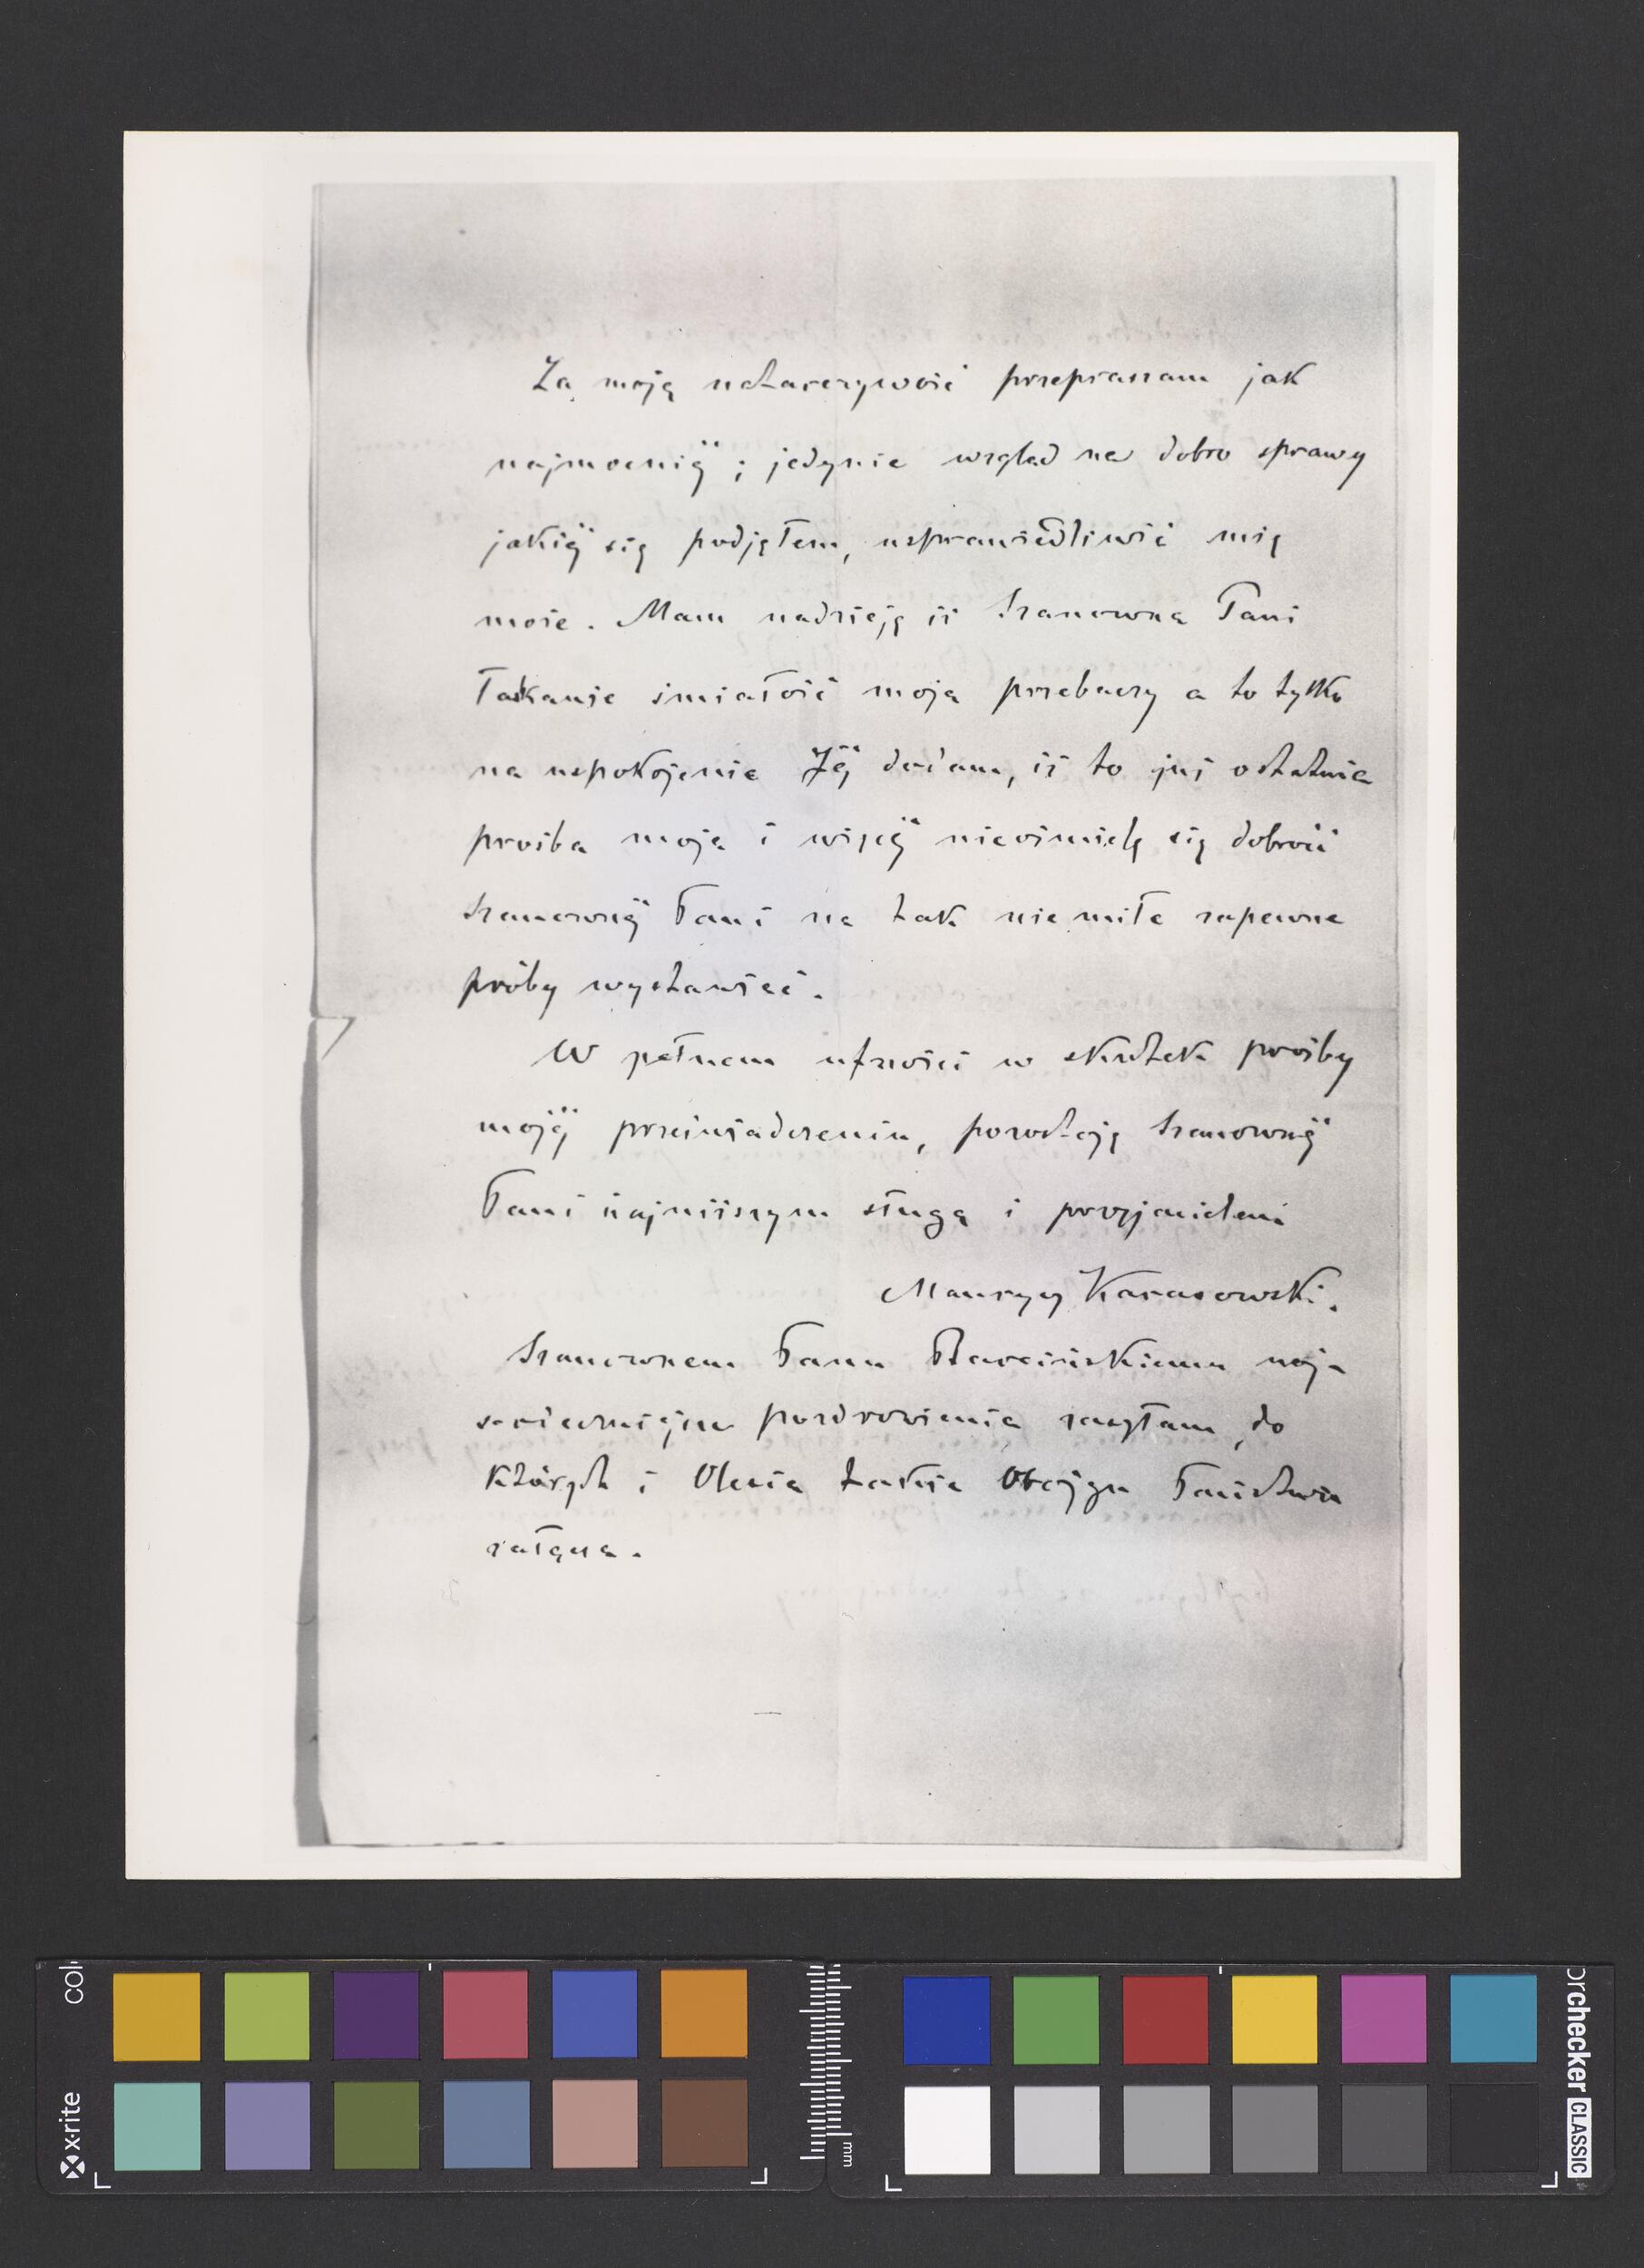 Za moją natarczywość przepraszam jak
najmocniéj; jedynie wzgląd na dobro sprawy
jakiéj się podjąłem, usprawiedliwić mię
może. Mam nadzieję iż Szanowna Pani
łaskawie śmiałość moją przebaczy a to tylko
na uspokojenie Jéj dodam, iż to już ostatnia
prośba moja i więcéj nieośmielę się dobroć
Szanownéj Pani na tak nie miłe zapewne
próby wystawiać.
W pełnem ufności w skutek prośby
mojéj przeświadczeniu, pozostaję Szanownéj
Pani najniższym sługą i przyjacielem
Maurycy Karasowski.
Szanownem Panu Barcińskiemu moje
serdeczniejsze pozdrowienia zasyłam, do
których i Olesia także Obojgu Państwu
załącza.
x-rite
colorchecker CLASSIC
mm